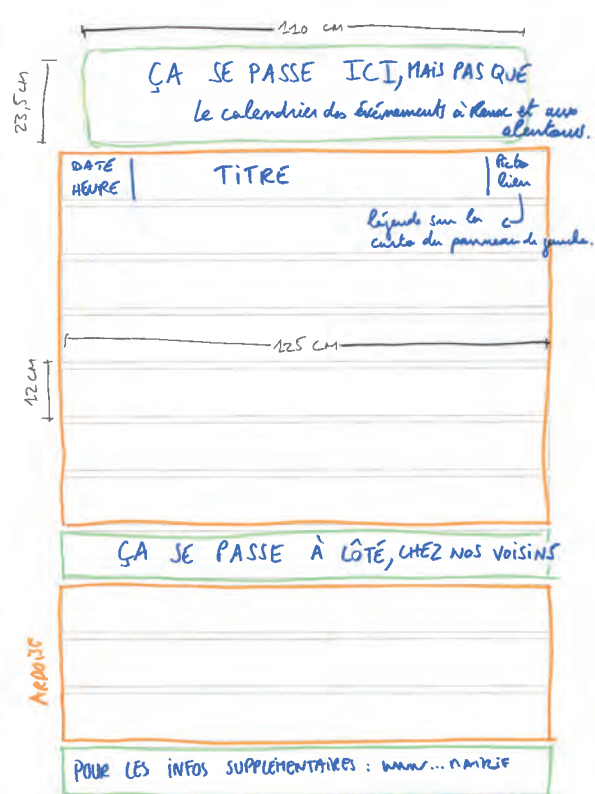 110 CM
23,5 CM
ÇA SE PASSE ICI, MAIS PAS QUE
Le calendrier des événements à Renac et aux
alentours.
DATE
HEURE
TITRE
Picto
lieu
légende sur la
carte du panneau de gauche.
125 CM
12 CM
ÇA SE PASSE À CÔTÉ, CHEZ NOS VOISINS
ARDOISE
POUR LES INFOS SUPPLÉMENTAIRES : WWW... MAIRIE